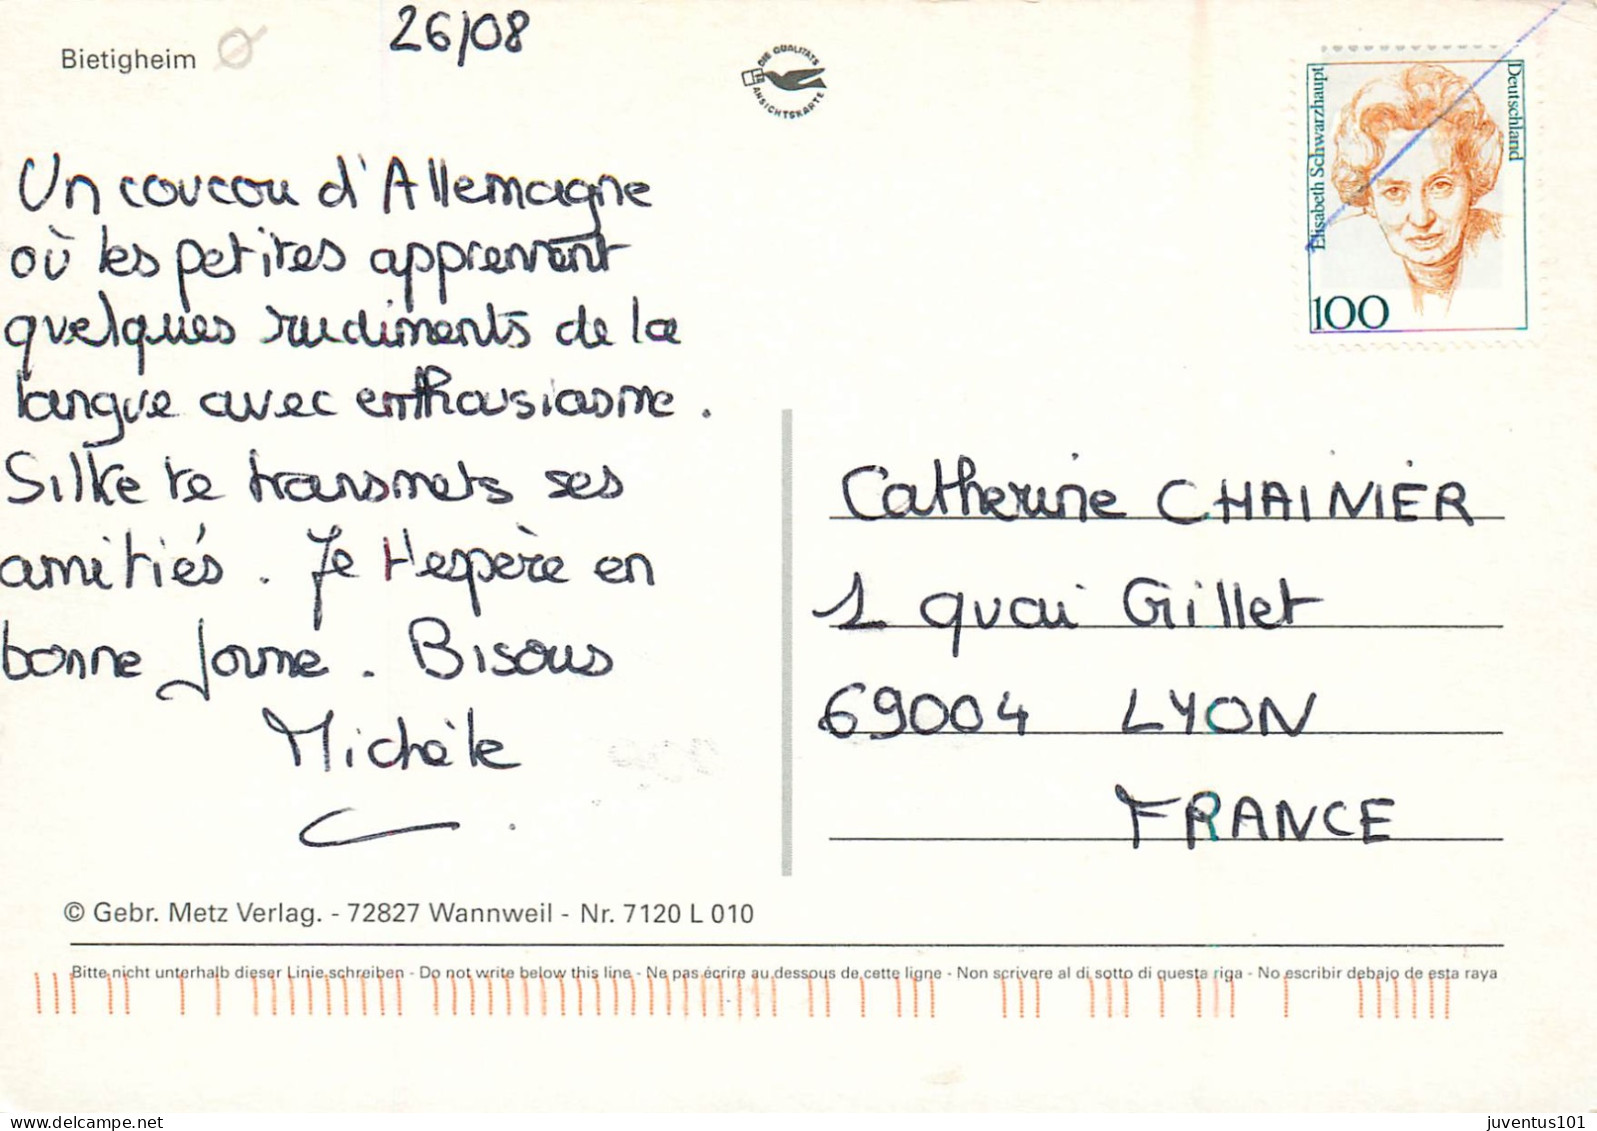 Bietigheim
26/08
DIE QUALITÄTS
ANSICHTSKARTE
Elisabeth Schwarzhaupt
Deutschland
100
Un coucou d'Allemagne
où les petites apprennent
quelques rudiments de la
langue avec enthousiasme.
Silke te transmets ses
amitiés. Je t'espère en
bonne forme. Bisous
Michèle
Catherine CHAINIER
1 quai Gillet
69004 LYON
FRANCE
© Gebr. Metz Verlag. - 72827 Wannweil - Nr. 7120 L 010
Bitte nicht unterhalb dieser Linie schreiben - Do not write below this line - Ne pas écrire au dessous de cette ligne - Non scrivere al di sotto di questa riga - No escribir debajo de esta raya
juventus101